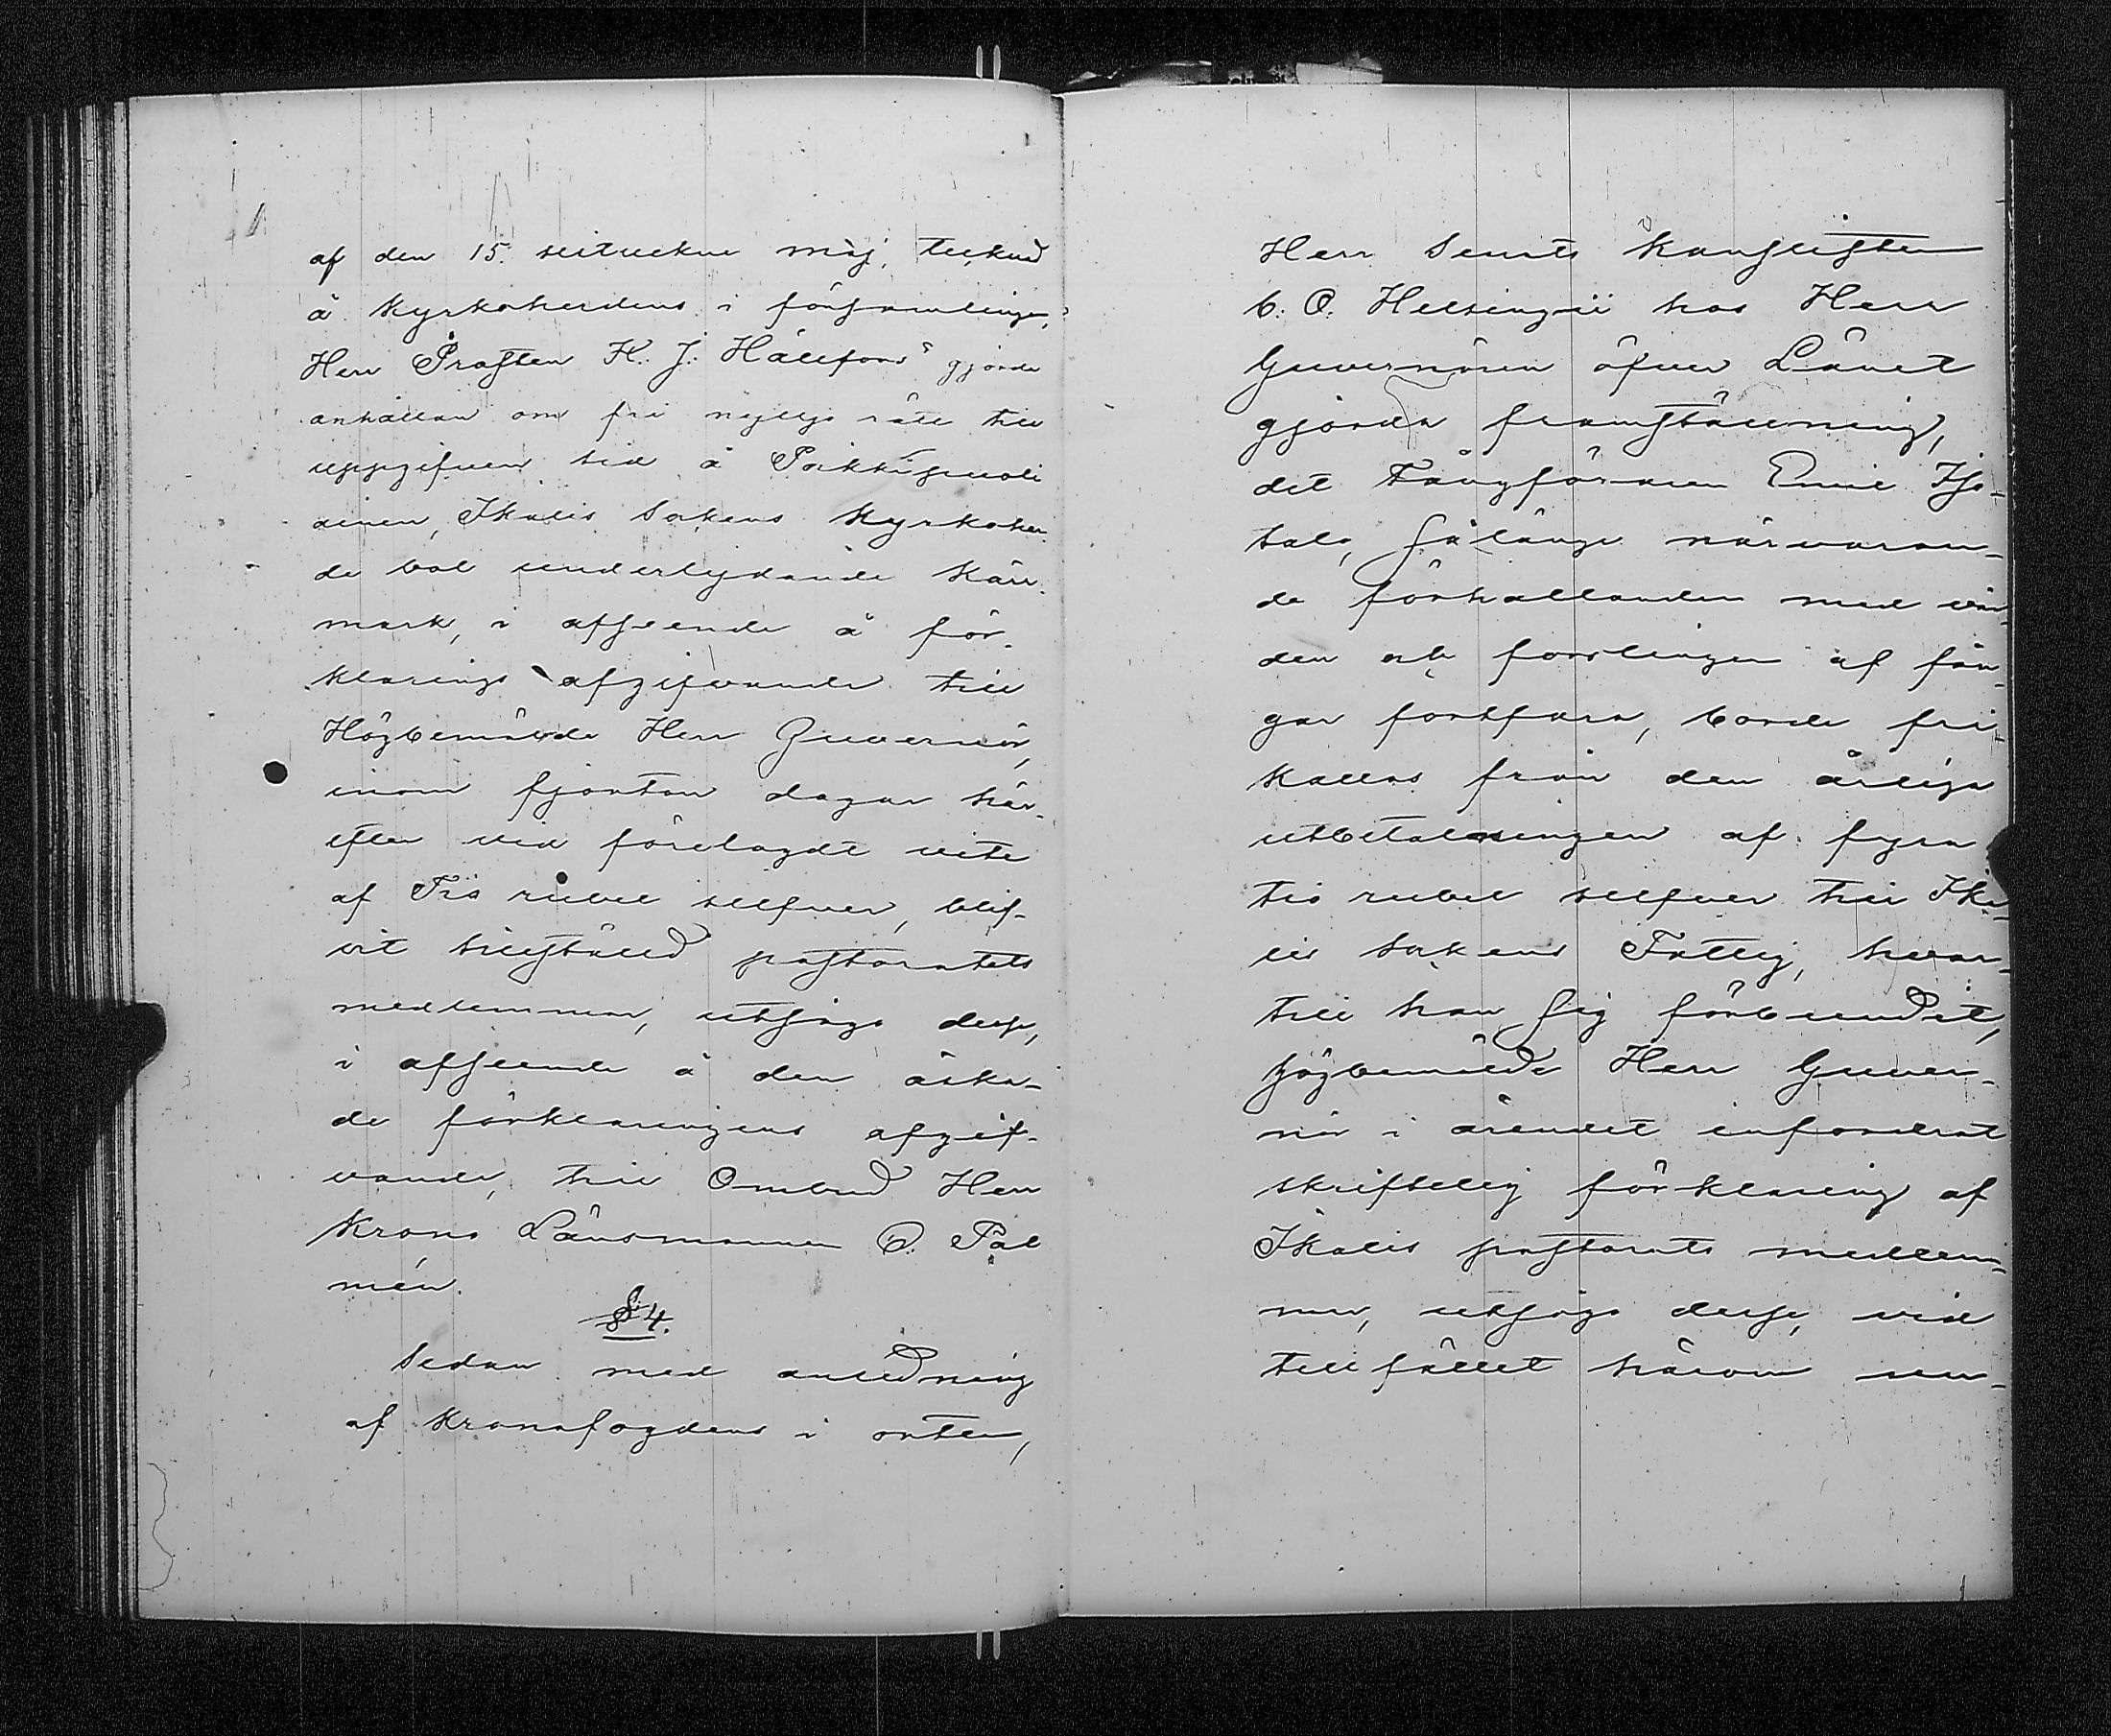 af den 15. sistvekne maj, tecknad
å Kyrkoherdens i församlingen,
Herr Prosten K. J. Hällfors' gjorde
anhållan om fri nyttjo rätt till
uppgifven tid å
Ikalis Sokens Kyrkoher-
de bol underlydande kärr-
mark, i afseende å för-
klarings afgifvande till
Högbemälde Herr Guvernör,
inom fjorton dagar här-
efter vid förelagdt vite
af Tio rubel silfver, blif-
vit tillställd pastoratets
medlemmar, utsågo desse,
i afseende å den äska-
de förklaringens afgif-
vande, till Ombud Herr
Krono Länsmannen O. Pal
mén.
§ 4.
Sedan med anledning
af Kronofogdens i orten,
Herr Senats Kanslisten
C. O. Helsingii hos Herr
Guvernören öfver Länet
gjorda framställning,
det Fångföraren Emil Iso-
talo, sålänge närvaran-
de förhållanden med vår-
den och forslingen af fån-
gar fortfara, borde fri-
kallas från den årliga
utbetalningen af fyra
tio rubel silfver till Ika-
lis Sokens Fattig, hvar-
till han sig förbundit,
högbemälde Herr Guver-
nör i ärendet infordrat
skriftelig förklaring af
Ikalis pastorats medlem-
mar, utsågo desse, vid
tillfället härom un-